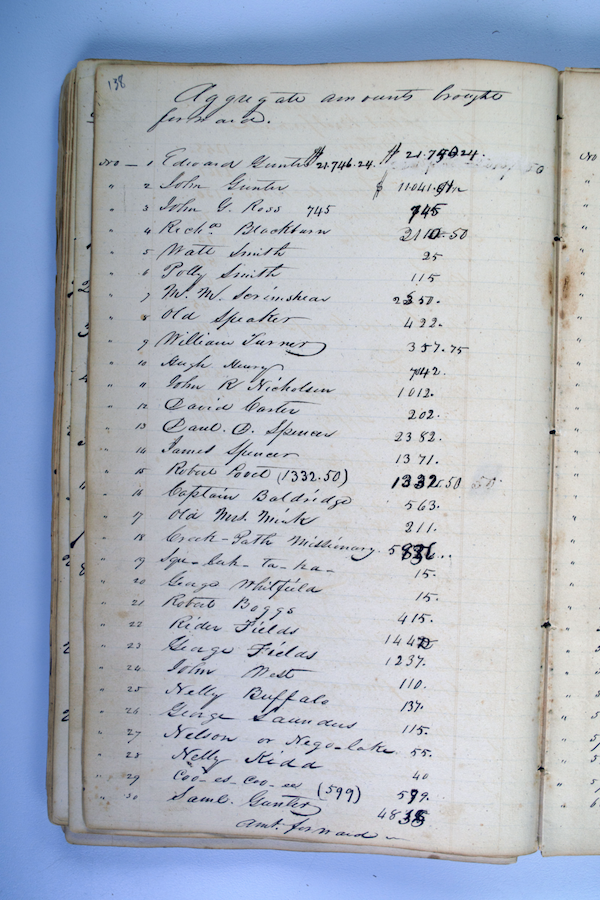 138
Aggregate amounts brought
forward.
No – 1 Edward Gunter $21.746.24 $ 21.746.24
" 2 John Gunter $ 11041.
" 3 John G. Ross 745 745
" 4 Richd Blackburn 2110.50
" 5 Watt Smith 25
" 6 Polly Smith 115
" 7 M. M. Scrimshear 2350.
" 8 Old Speaker 422.
" 9 William Turner 357.75
" 10 Hugh Henry 742.
" 11 John R Nicholson 1012.
" 12 David Carter 202.
" 13 Danl. O. Spencer 2382.
" 14 James Spencer 1371.
" 15 Robert (1332.50) 1332.50 50
" 16 Captain Baldridge 563.
" 17 Old Mrs. Mink 211.
" 18 Creek-Path Missionary.
" 19 15.
" 20 George Whitfield 15.
" 21 Robert Boggs 415.
" 22 Rider Fields
" 23 George Fields 1237.
" 24 John West 110.
" 25 Nelly Buffalo 137.
" 26 George Saunders 115.
" 27 Nelson or Nego-lake 55.
" 28 Nelly Kidd 40
" 29 Coo-es-coo-ee (599) 599.
" 30 Saml. Gunter
amt. forward –